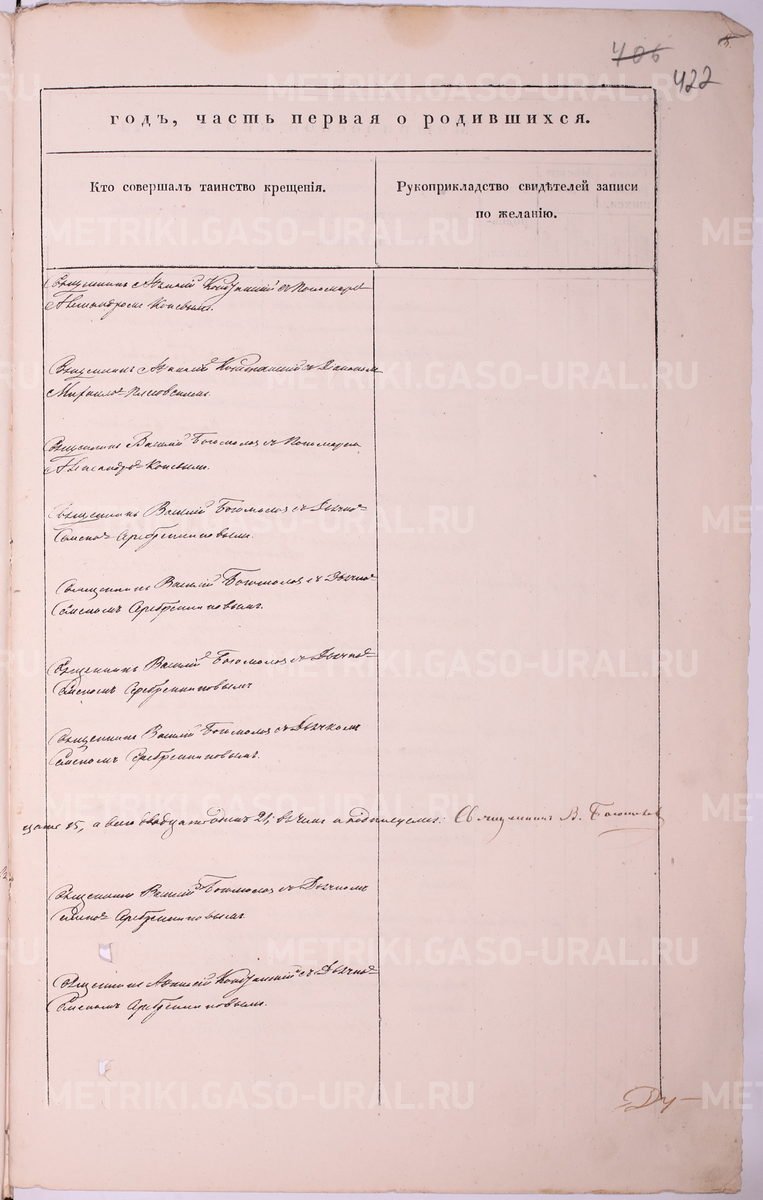 406
422
годъ, часть первая о родившихся.
Кто совершалъ таинство крещенія.
Рукоприкладство свидѣтелей записи
по желанію.
Священникъ Кондрашинъ съ Пономаремъ
Священникъ Кондрашинъ съ Діакономъ
Михаило
Священникъ Василій Богомоловъ съ Пономаремъ
Священникъ Василій Богомоловъ съ Дьячко
Серебренниковымъ.
Священникъ Василій Богомоловъ съ Дьячко
Семеномъ Серебренниковымъ.
Священникъ Василій Богомоловъ съ Дьячко
Семеномъ Серебренниковымъ
Священникъ Василій Богомоловъ съ Дьячкомъ
Семеномъ Серебренниковымъ.
а всего двадцать одинъ 21; въ чемъ и подписуемся: Священникъ В. Богомоловъ
Священникъ Василій Богомоловъ съ Дьячкомъ
Серебренниковымъ
Священникъ Кондрашинъ съ Дьячко
Семеномъ Серебренниковымъ.
Ду-
METRIKI.GASO-URAL.RU